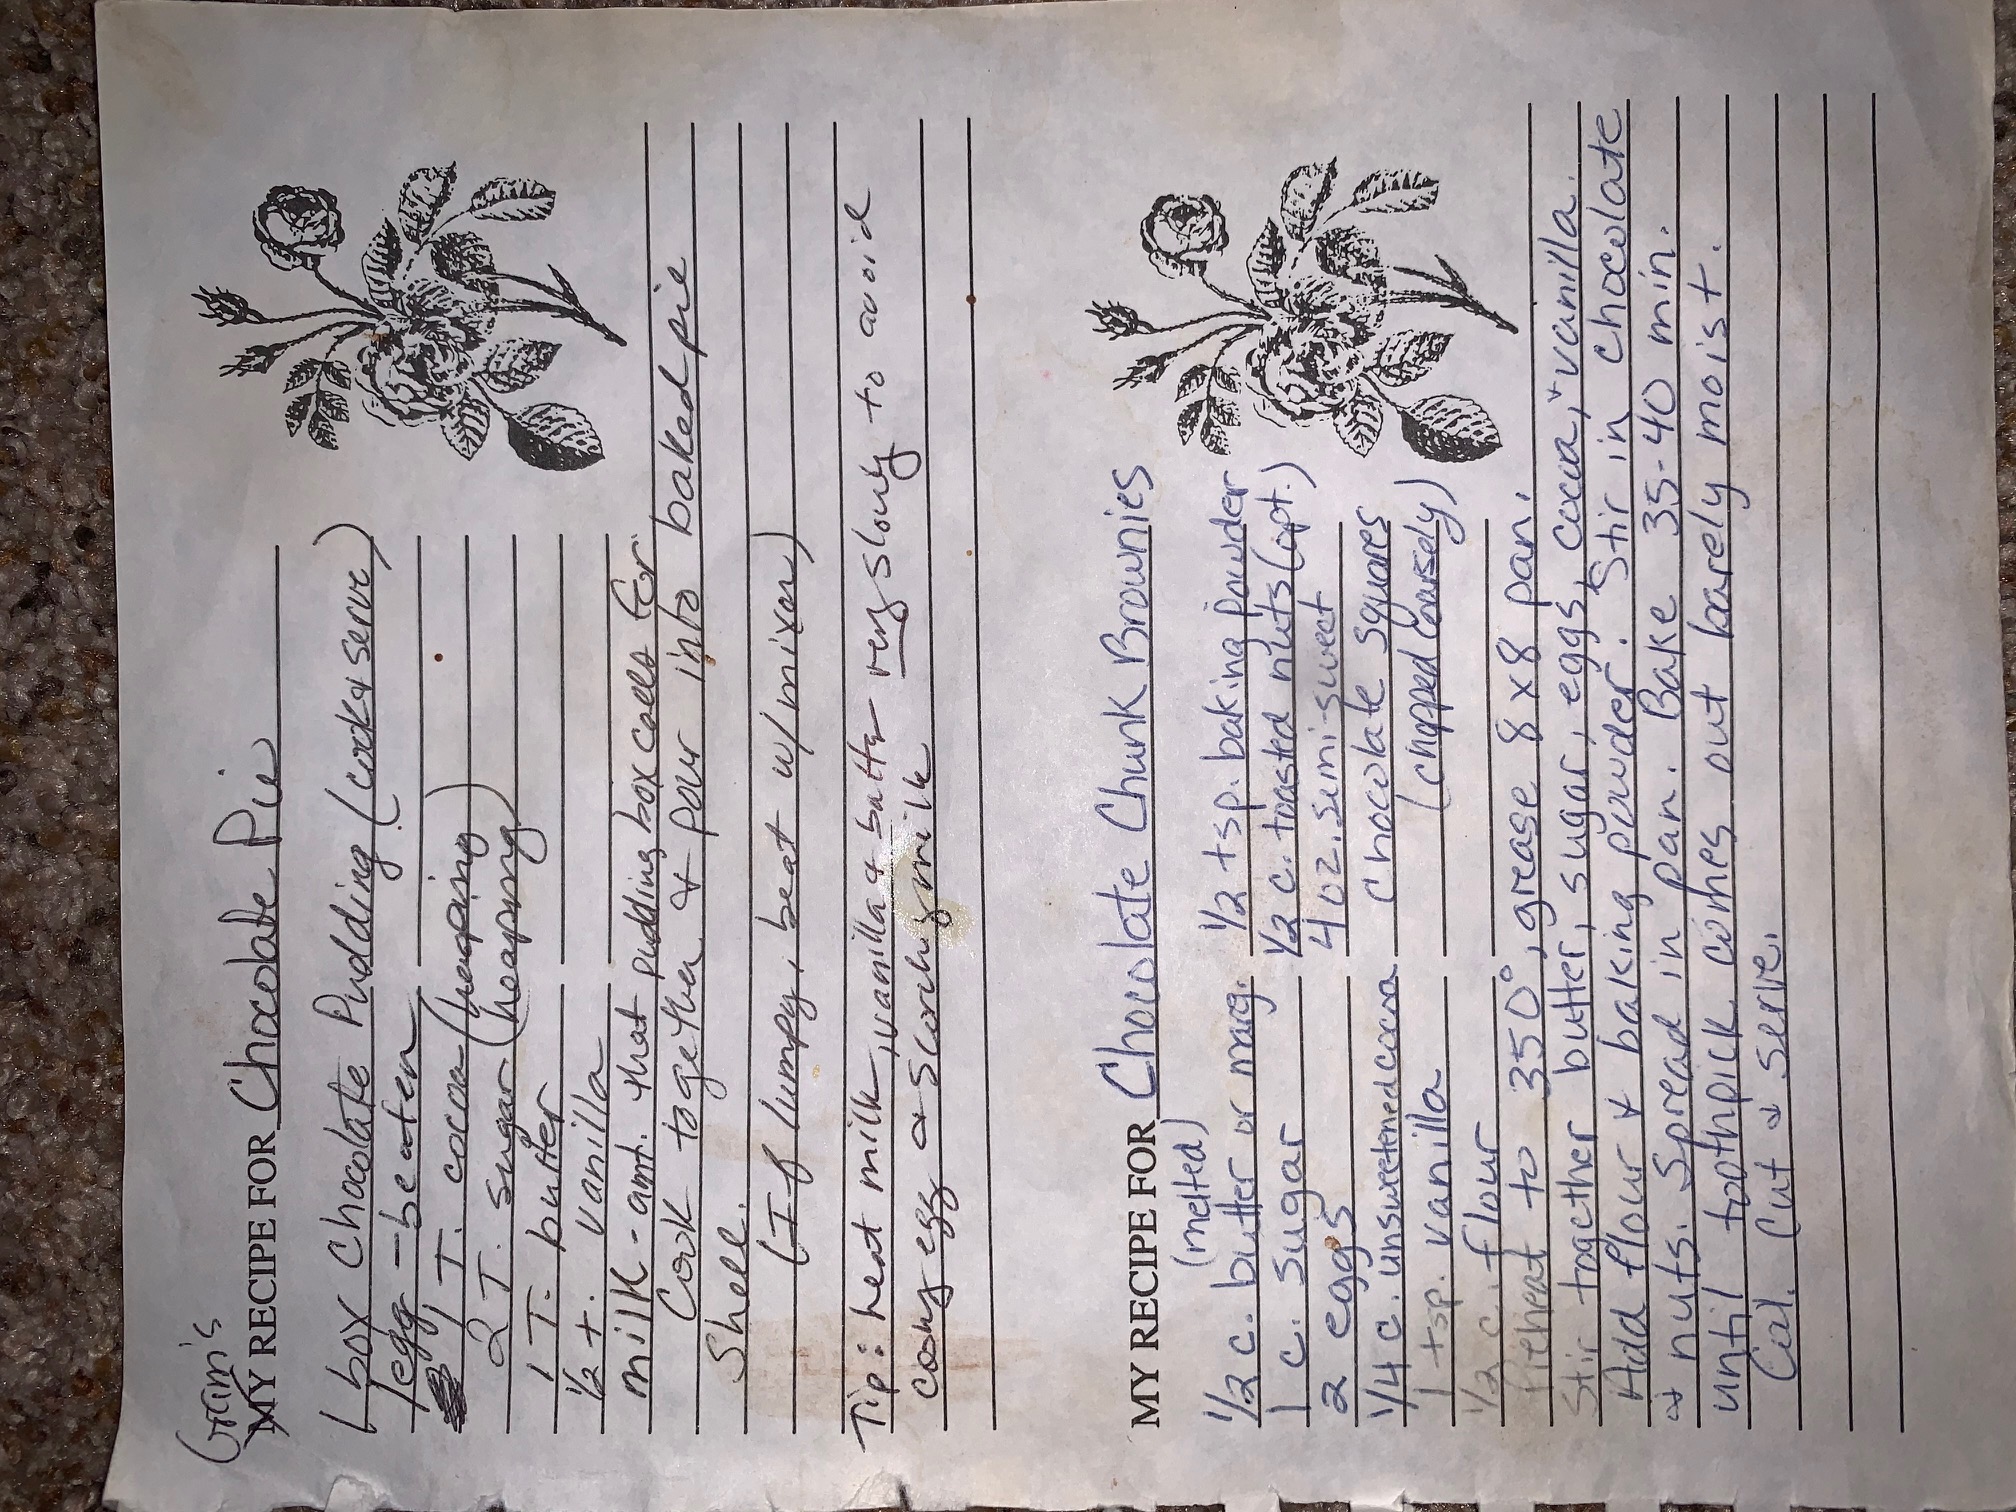 Gram's
MY RECIPE FOR Chocolate Pie
1 box Chocolate Pudding (cook & serve)
1 egg - beaten
1 T. cocoa (heaping)
2 T. sugar (heaping)
1 T. butter
1/2 t. vanilla
milk - amt. that pudding box calls for.
Cook together & pour into baked pie
Shell.
(If lumpy, beat w/ mixer)
Tip: heat milk, vanilla & butter very slowly to avoid
cooking egg & scorching milk
MY RECIPE FOR Chocolate Chunk Brownies
(melted)
1/2 c. butter or marg.
1 c. sugar
2 eggs
1/4 c. unsweetened cocoa
1 tsp. vanilla
1/2 c. flour
1/2 tsp. baking powder
1/2 c. toasted nuts (opt.)
4 oz. semi-sweet
chocolate squares
(chopped coarsely)
Preheat to 350°, grease 8x8 pan.
Stir together butter, sugar, eggs, cocoa, + vanilla.
Add flour & baking powder. Stir in chocolate
& nuts. Spread in pan. Bake 35-40 min.
until toothpick comes out barely moist.
Cool. Cut & serve.